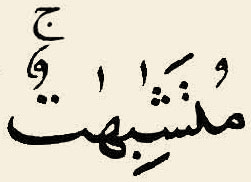 مُتَشَٰبِهَٰتٌۚ